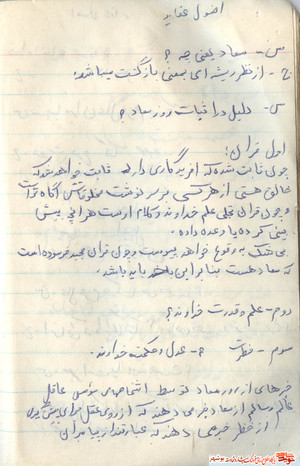 اصول عقاید
س- معاد یعنی چه ؟
ج- از نظر ریشه ای بمعنی بازگشت میباشد.
س- دلیل در اثبات روز معاد ؟
اول قرآن :
چون ثابت شده که آفریدگاری دارد ثابت خواهد شد که
خالق هستی از هر کسی بر سرنوشت مخلوقاتش آگاه تر است
و چون قرآن تجلی علم خداوند و کلام اوست هر آنچه پیش
بینی کرده یا وعده داده
بی شک به وقوع خواهد پیوست و چون قرآن مجید فرموده است
که معاد هست بنابراین باید باشد.
دوم- علم و قدرت خداوند؟
سوم- فطرت - عدل و حکمت خداوند.
خبرهای از روز معاد توسط انسانهای مؤمن عاقل
عالم و سالم از معاد خبر می دهند که از روی عقل برای پیش گیری
از خطر خبر می دهند که عبارتند از پیامبران